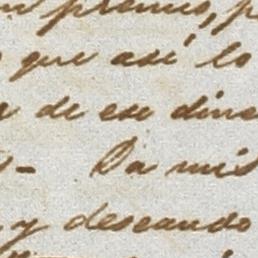 premio, p
que así lo
de ese dine
Da mis
y deseando